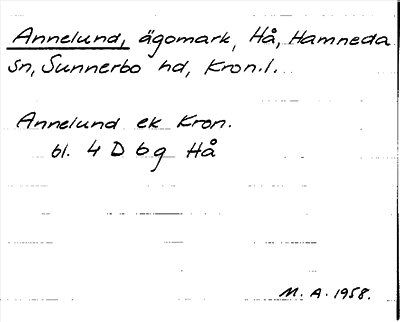 Annelund, ägomark, Hå, Hamneda
sn, Sunnerbo hd, Kron.l.
Annelund ek Kron.
bl. 4 D 6 g Hå
M. A. 1958.